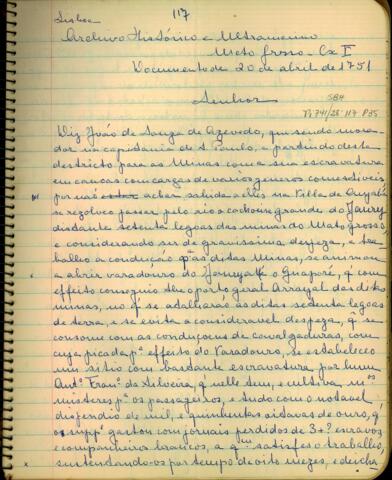 Lisboa
117
Archivo Histórico e Ultramarino
Mato Grosso - Cx I
Documento de 20 de abril de 1751
Senhor
584
Pi 741/28 117 P35
Diz João de Souza de Azevedo, que sendo mora-
dor na capitania de S. Paulo, e partindo desta
destricto para as Minas com a sua escravatura
em canoas com cargas de varios generos comestiveis
por não achar sahida a elles na Villa de Cuyabá
se rezolveo passar pelo rio a cachoeira grande do Jaurú
distante setenta legoas das minas do Mato grosso,
e considerando ser de gravissima despeza, e tra-
balho a condução pª as ditas Minas, se animou
a abrir varadouro do a o Guaporé, q' com
effeito conseguio the o porto geral Arrayal das ditas
minas, no q' se adalharão as ditas setenta legoas
de terra, e se evita a consideravel despeza, q' se
consome com as conduçoens de cavalgaduras, com
cuja picada pª effeito do Varadouro, se estabeleceo
um sitio com bastante escravatura por hum
Antº Franº da Silveira, q' nelle tem, e cultiva mºˢ
misteres pª os passageiros, e tudo com o notavel
dispendio de mil, e quinhentas oitavas de ouro, q'
o suppª gastou com jornais perdidos de escravos
e companheiros brancos, a qᵐ satisfes o trabalho,
sustendando-os por tempo de oito mezes, e deicha